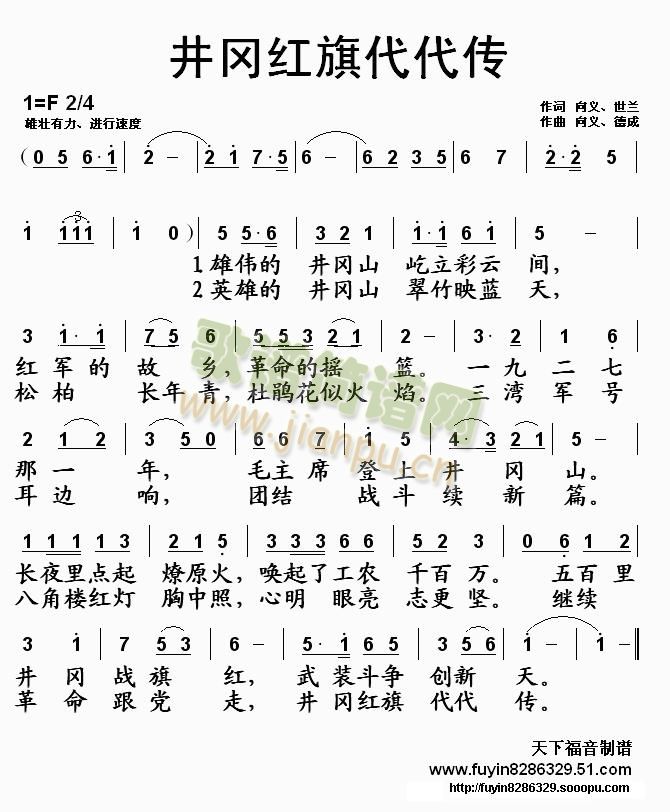 井冈红旗代代传
1=F 2/4
雄壮有力、进行速度
作词 向义、世兰
作曲 向义、德成
(0 5 6·1 | 2 - | 2 1 7·5 | 6 - | 6 2 3 5 | 6 7 | 2·2 5
1 111 | 1 0) | 5 5·6 | 3 2 1 | 1·1 6 1 | 5 - |
1雄伟的 井冈山 屹立彩云 间，
2英雄的 井冈山 翠竹映蓝 天，
3 1·1 | 7 5 6 | 5 5 3 2 1 | 2 - | 3·2 | 1 6
红军的 故 乡，革命的摇 篮。一九二七
松柏 长年青，杜鹃花似火 焰。三湾军号
2 1 2 | 3 5 0 | 6 6 7 | 1 5 | 4·3 2 1 | 5 - |
那一 年， 毛主席 登上井 冈 山。
耳边 响， 团结 战斗续 新 篇。
1 1 1 1 3 | 2 1 5 | 3 3 3 6 6 | 5 1 2 | 2 - | 0 6 1 2
长夜里点起 燎原火，唤起了工农 千百 万。 五百里
八角楼红灯 胸中照，心明 眼亮 志更 坚。 继续
3 1 | 7 5 3 | 6 - | 5·1 6 5 | 6 2 | 1 - | 1 -
井 冈 战旗 红， 武装斗争 创新 天。
革 命 跟党 走， 井冈红旗 代代 传。
歌谱简谱网
www.jianpu.cn
天下福音制谱
www.fuyin8286329.51.com
http://fuyin8286329.sooopu.com